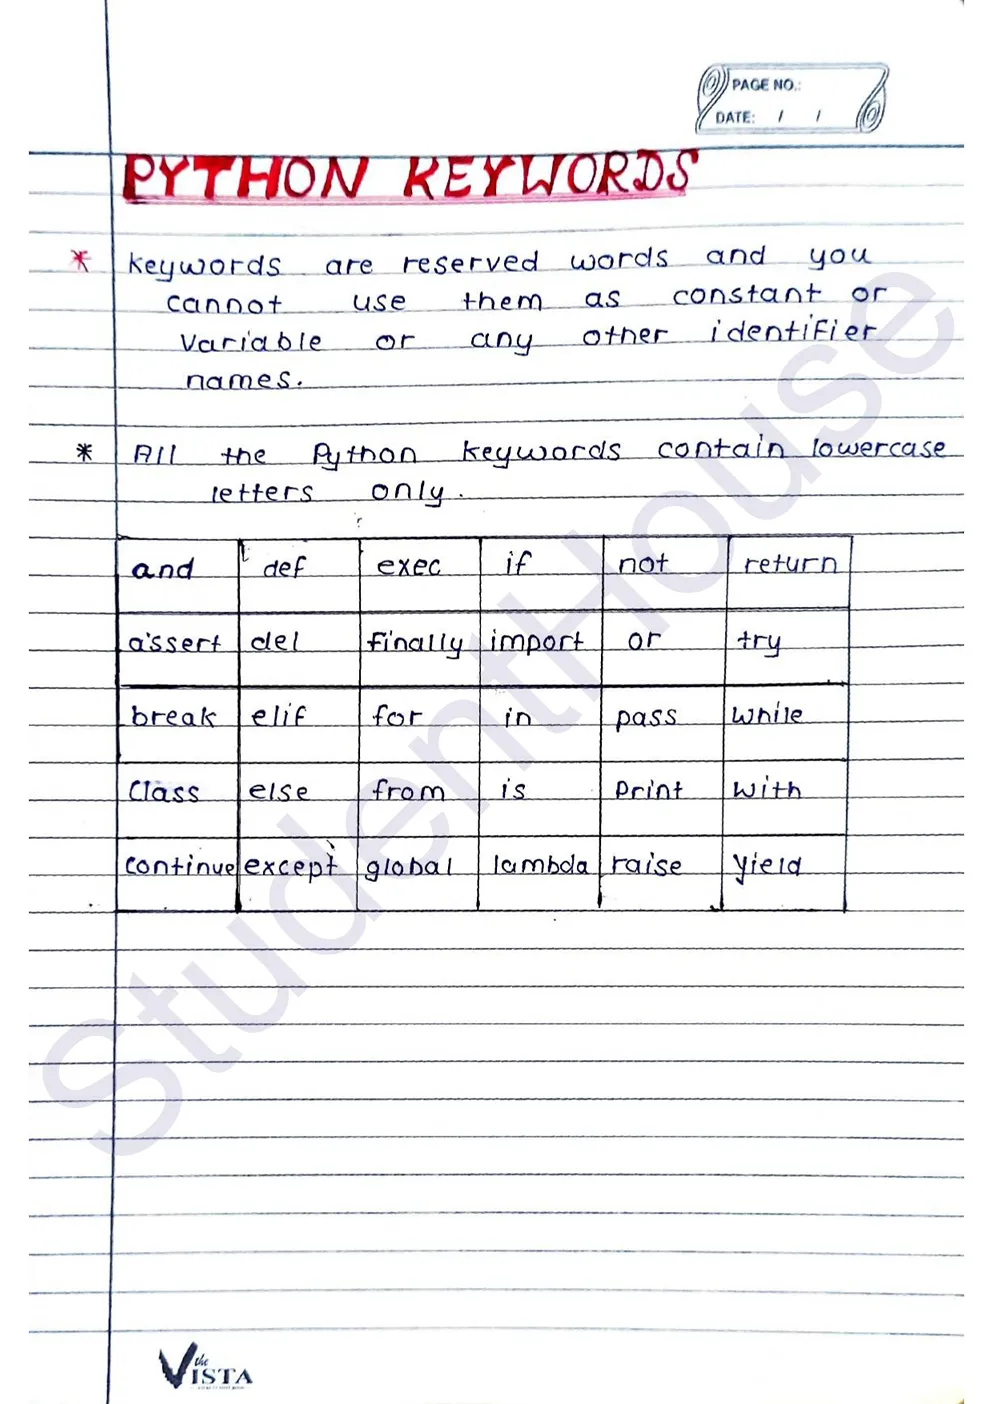 PAGE NO.:
DATE: / /
PYTHON KEYWORDS
* keywords are reserved words and you
cannot use them as constant or
variable or any other identifier
names.
* All the Python keywords contain lowercase
letters only.
and def exec if not return
assert del finally import or try
break elif for in pass while
Class else from is Print With
continue except global lambda raise yield
StudentHouse
the
VISTA